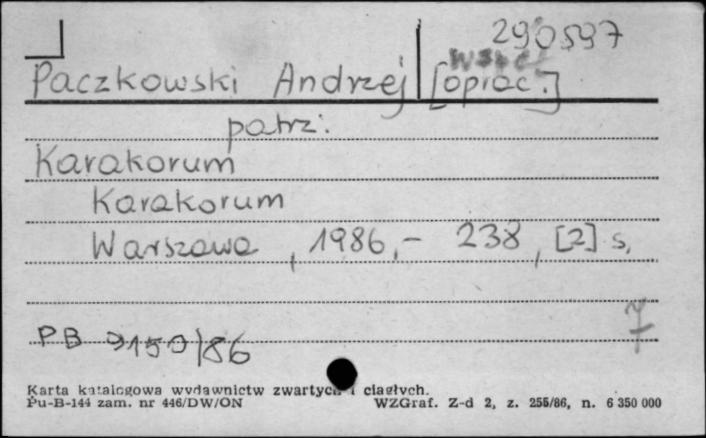 290597
współ
Paczkowski Andrzej [oprac.]
patrz:
Karakorum
Karakorum
Warszawa, 1986,- 238, [2] s.
7
PB 9150/86
Karta katalogowa wydawnictw zwartych i ciągłych.
Pu-B-144 zam. nr 446/DW/ON WZGraf. Z-d 2, z. 255/86, n. 6 350 000